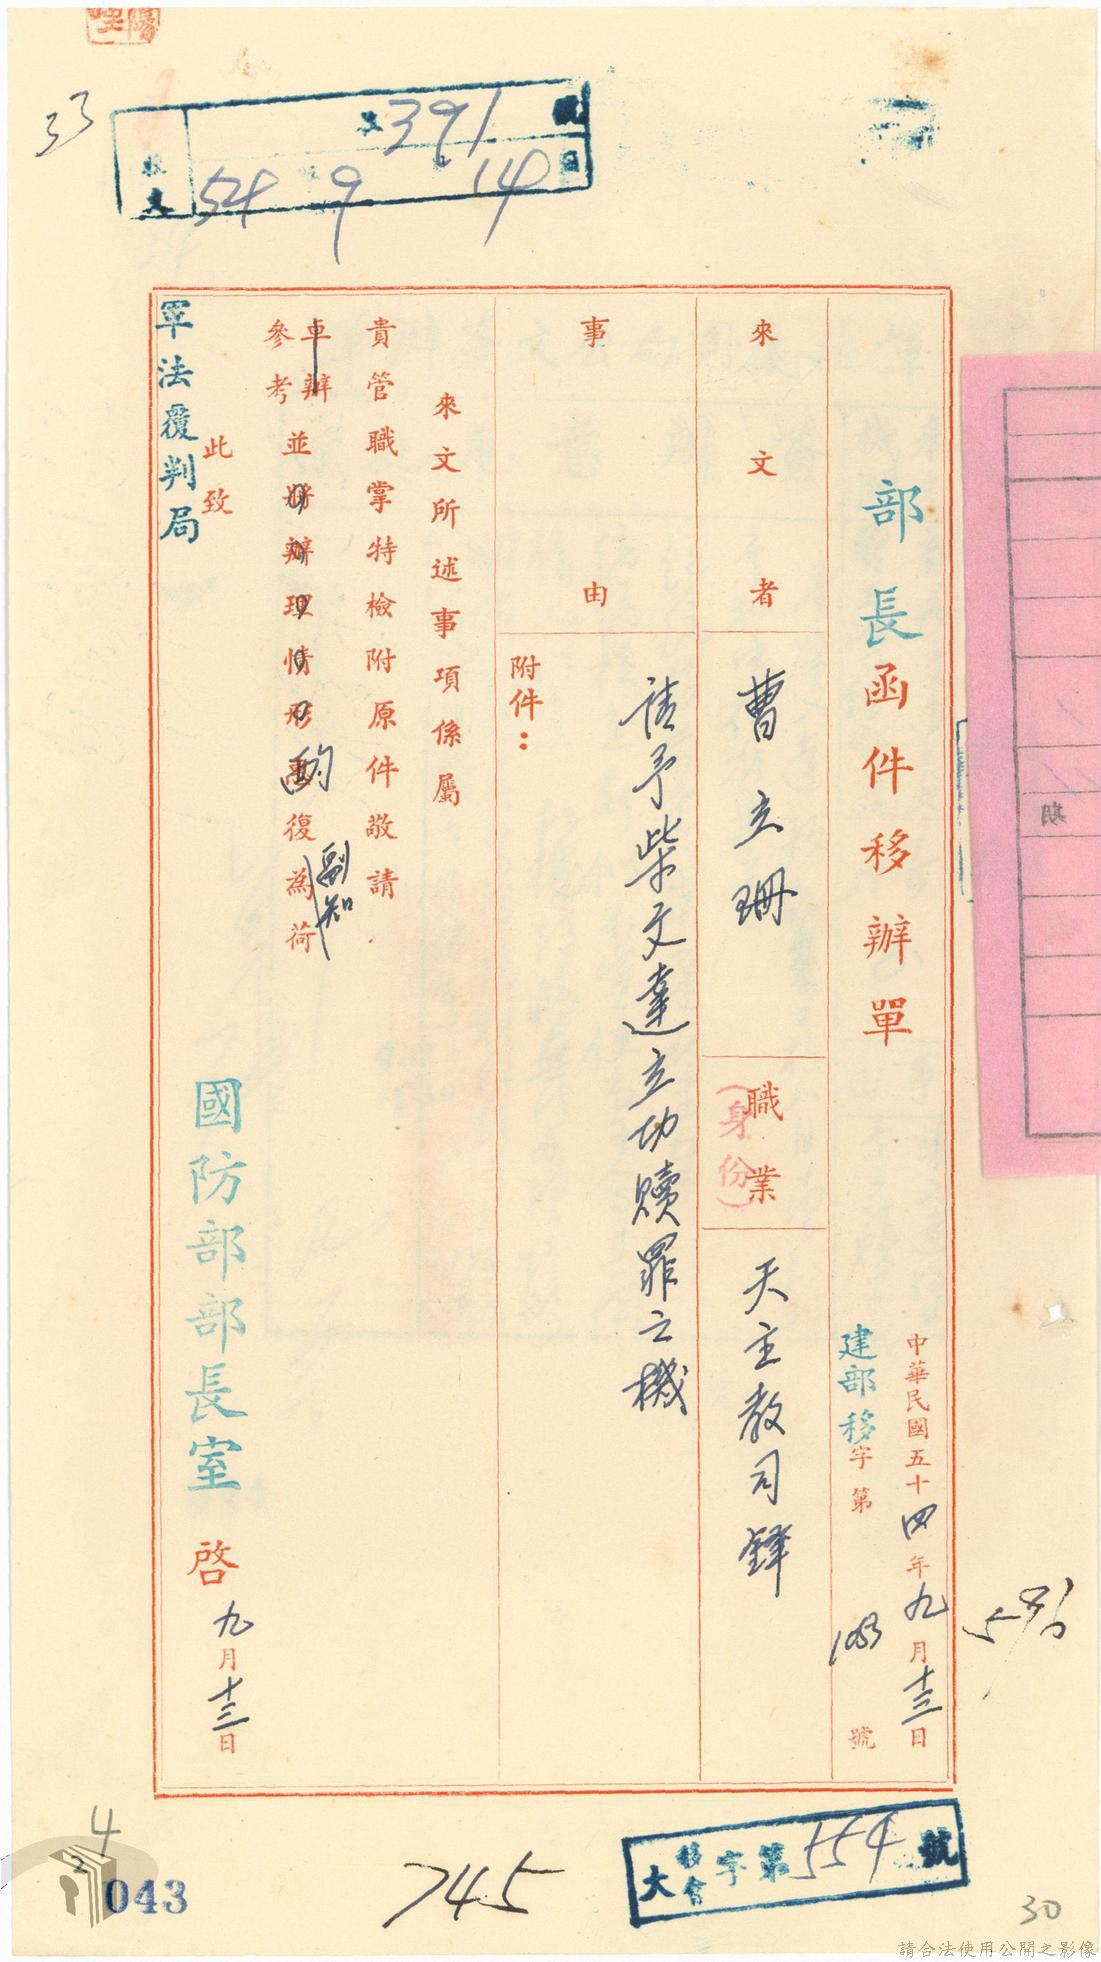 33
391 號
收文 54 9 14 日
部長函件移辦單
中華民國五十四年九月十三日
建部移字第 1083 號
來文者
曹立珊
職業
(身份)
天主教司鐸
事由
請予柴文達立功贖罪之機
附件：
來文所述事項係屬
貴管職掌特檢附原件敬請
卓辦
參考
並將辦理情形惠復為荷
酌
副知
此致
軍法覆判局
國防部部長室 啓
九月十三日
期
596
大移會字第554號
745
24
043
30
請合法使用公開之影像